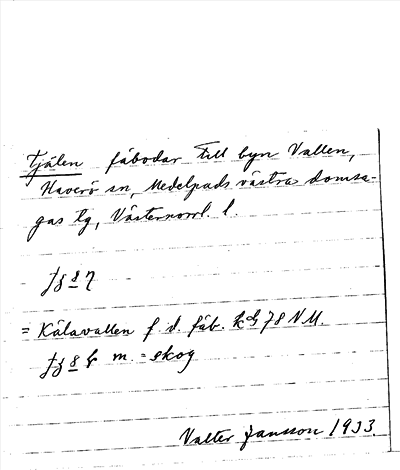 Tjälen fäbodar till byn Vallen,
Haverö sn, Medelpads västra domsa-
gas tg, Västernorrl. l.
= Kälavallen f. d. fäb. 78 NV M.
m. = skog
Valter Jansson 1933.